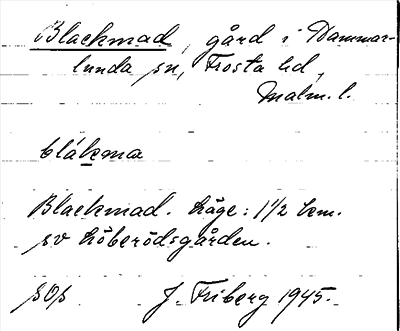 Blackmad, gård i Dammar-
lunda sn, Frosta hd,
Malm. l.
blákma
Blackmad. Läge: 1 1/2 km.
sv höberödsgården.
sOs J. Friberg 1945.